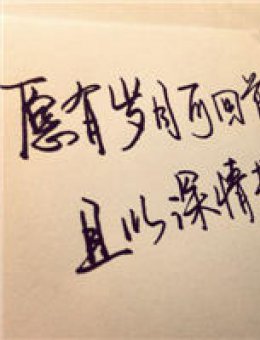 愿有岁月可回首
且以深情